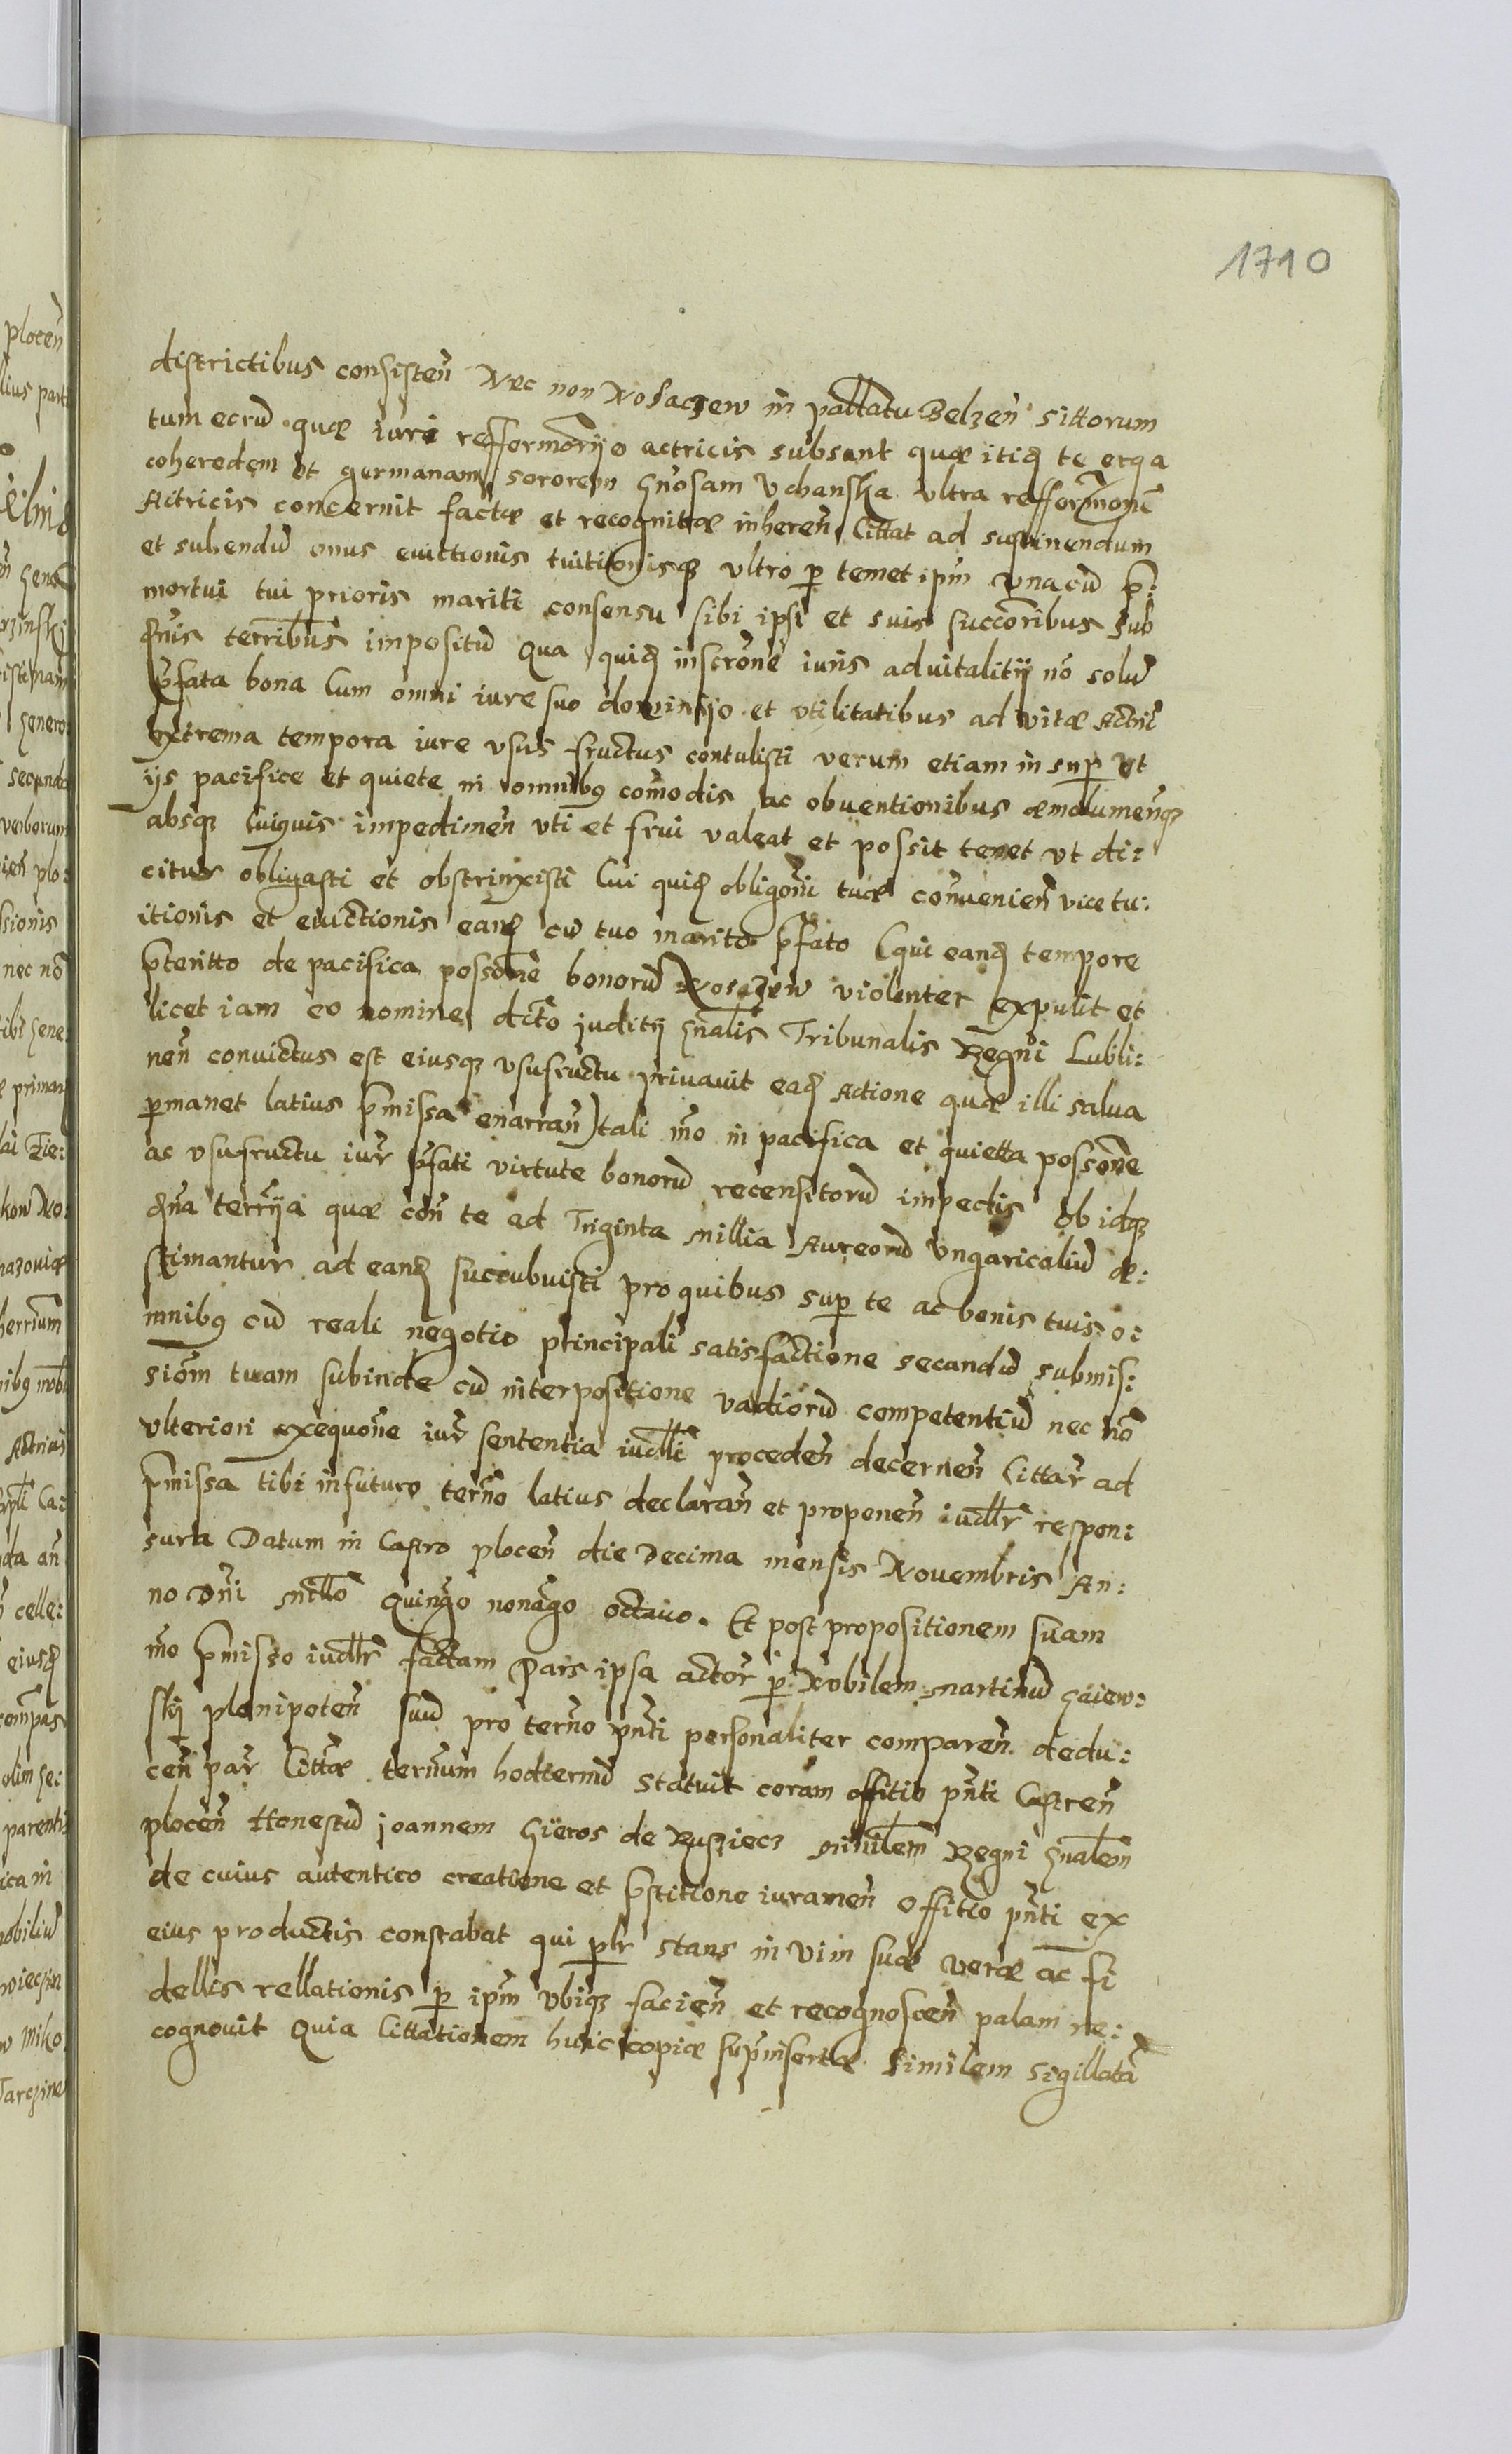 1710
districtibus consisten̄ Nec non Nosaczew in pallatu Belzen̄ sittorum
tum eorū quæ iuri refformōrijo actricis subsunt quæ itiꝗ te erga
coheredem et germanam sororem Gn̄osam Vchanska Ultra refformōne
Actricis concernit factæ et recognitæ inheren̄ Cittat ad sustinendum
et subendū onus evictionis tuitionisqꝫ Ultro p̱ temet ipm̄ una cū p̄:
mortui tui prioris mariti consensu sibi ipsi et suis succōribus sub
terribus impositū Qua quiꝗ inscrōne iuris advitalitij nō solū
p̄fata bona Cum omni iure suo dominijo et vtilitatibus ad vitæ Actric̄
extrema tempora iure vsus fructus contulisti verum etiam in sup̱ vt
ijs pacifice et quiete in omnibꝫ com̄odis ac obventionibus æmolumen̄qꝫ
absqꝫ Cuiquis impedimen̄ vti et frui valeat et possit tenet vt di:
citur obligasti et obstrinxisti Cui quiꝗ obligōni tuæ convenien̄ vice tu:
itionis et evictionis eanꝗ cū tuo marito p̄fato (qui eanꝗ tempore
p̄teritto de pacifica possōne bonorū Nosaczew violenter expulit et
licet iam eo nomine dicto juditij Gn̄alis Tribunalis Regni Lubli:
nen̄ convictus est eiusqꝫ vsufructu privavit eaꝗ Actione quæ illi salva
p̱manet latius p̄missa enarran̄) tali mō in pacifica et quietta possōne
ac vsufructu iur̄ p̄fati virtute bonorū recensitorū impedis ob idqꝫ
terrija quæ con̄ te ad Triginta millia Aureorū Ungaricaliū æ:
stimantur ad eanꝗ succubuisti pro quibus sup̱ te ac bonis tuis o:
mnibꝫ cū reali negotio principali satisfactione secandū submis:
siōm tuam subinde cū interpositione vadiorū competentiū nec nō
vlteriori exequōne iur̄ sententia iudlli proceden̄ decernen̄ Cittar̄ ad
p̄missa tibi in futuro term̄o latius declaran̄ et proponen̄ iudllr̄ respon:
sura Datum in Castro plocen̄ die Decima mensis Novembris An:
no Dn̄i Mllo Quing̃o nonag̃o octavo. Et post propositionem suam
mō p̄misso iudllr̄ factam Pars ipsa actor̄ p̱ Nobilem Martinū Gaiew:
skj plenipoten̄ suū pro term̄o pn̄ti personaliter comparen̄ dedu:
cen̄ par̄ Cittæ termum hodiernū statuit coram offitio pn̄ti Castren̄
plocen̄ Honestū joannem Gieros de Rusziecz minilem̄ Regni Gn̄alem
de cuius autentico creatione et p̄stitione iuramen̄ Offitio pn̄ti ex
eius productis constabat qui p̱lr stans in vim suæ veræ ac fi
dellis rellationis p̱ ipm̄ vbiqꝫ facien̄ et recognoscen̄ palam re:
cognovit Quia Cittationem huic copiæ sup̱insertæ similem sigillatā